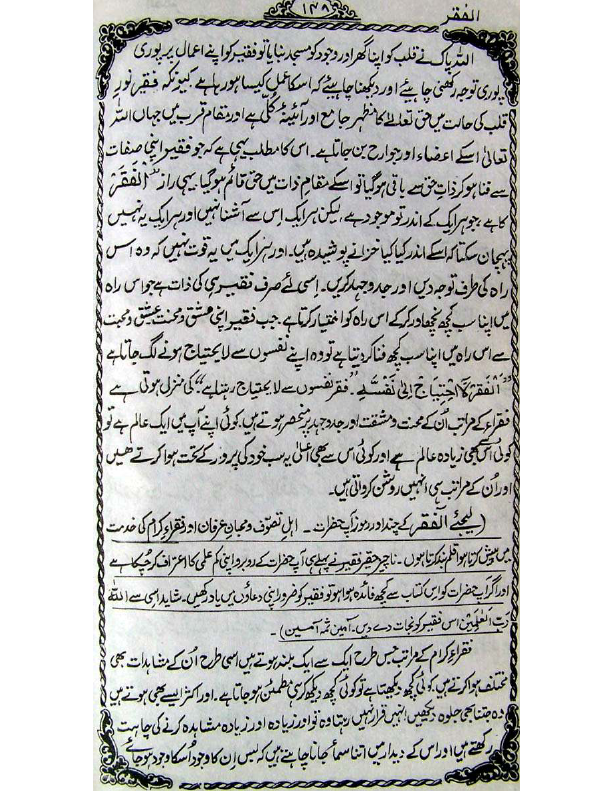 الفقر
١٣٨
اللہ پاک نے قلب کو اپنا گھر اور وجود کو مسجد بنایا تو فقیر کو اپنے اعمال پر پوری
پوری توجہ رکھنی چاہیئے اور دیکھنا چاہیئے کہ اسکا عمل کیسا ہو رہا ہے کیونکہ فقیر نورِ
قلب کی حالت میں حق تعالےٰ کا مظہر جامع اور آئینۂ کلّی ہے اور مقام قرب میں جہاں اللہ
تعالیٰ اسکے اعضاء اور جوارح بن جاتا ہے۔ اس کا مطلب یہی ہے کہ جو فقیر اپنی صفات
سے فنا ہو کر ذاتِ حق سے باقی ہو گیا تو اسکے مقامِ ذات میں حق قائم ہو گیا۔ یہی راز "اَلْفَقْرُ"
کا ہے، جو ہر ایک کے اندر تو موجود ہے، لیکن ہر ایک اس سے آشنا نہیں اور ہر ایک یہ نہیں
پہچان سکتا کہ اسکے اندر کیا کیا خزانے پوشیدہ ہیں۔ اور ہر ایک میں یہ قوت نہیں کہ وہ اس
راہ کی طرف توجہ دیں اور جدوجہد کریں۔ اِسی لئے صرف فقیر ہی کی ذات ہے جو اس راہ
میں اپنا سب کچھ نچھاور کر کے اس راہ کو اختیار کرتا ہے۔ جب فقیر اپنی مشق و محنت عشق و محبت
سے اس راہ میں اپنا سب کچھ فنا کر دیتا ہے تو وہ اپنے نفسوں سے لا یحتیاج ہونے لگ جاتا ہے
"اَلْفَقْرُ لَا اِحْتِیَاجَ اِلیٰ نَفْسِہٖ۔ "فقر نفسوں سے لا یحتیاج رہتا ہے" کی منزل ہوتی ہے
فقراء کے مراتب اُن کے محنت و مشقت اور جدوجہد پر منحصر ہوتے ہیں۔ کوئی اپنے آپ میں ایک عالم ہے تو
کوئی اُس سے بھی زیادہ عالم ہے اور کوئی اس سے بھی اعلیٰ یہ سب خود کی پرور کے تحت ہوا کرتے ھیں
اور اُن کے مراتب ہی انہیں روشن کرواتی ہیں۔
( لیجئے اَلْفَقْرُ کے چند اور رموز آپ حضرات۔ اہلِ تصوف و محبانِ عرفان اور فقراءِ کرام کی خدمت
میں پیش کرتا ہوا قلم بند کرتا ہوں۔ ناچیز حقیر فقیر نے پہلے ہی آپ حضرات کے روبرو اپنی کم علمی کا اعتراف کر چکا ہے
اور اگر آپ حضرات کو اس کتاب سے کچھ فائدہ ہوا ہو تو فقیر کو ضرور اپنی دعاؤں میں یاد رکھیں۔ شاید اسی سے اللہ
رَبُّ الْعٰلَمِیْن اس فقیر کو نجات دے دیں۔ آمین ثمہ آمین )۔
فقراءِ کرام کے مراتب جس طرح ایک سے ایک بلند ہوتے ہیں اسی طرح اُن کے مشاہدات بھی
مختلف ہوا کرتے ہیں۔ کوئی کچھ دیکھتا ہے تو کوئی کچھ دیکھ کر ہی مطمئن ہو جاتا ہے۔ اور اکثر ایسے بھی ہوتے ہیں
وہ جتنا بھی جلوہ دیکھیں انہیں قرار نہیں رہتا وہ تو اور زیادہ اور زیادہ مشاہدہ کرنے کی چاہت
رکھتے ہیں اور اس کے دیدار میں اتنا سما جانا چاہتے ہیں کہ بس اِن کا وجود اُسکا وجود ہو جائے